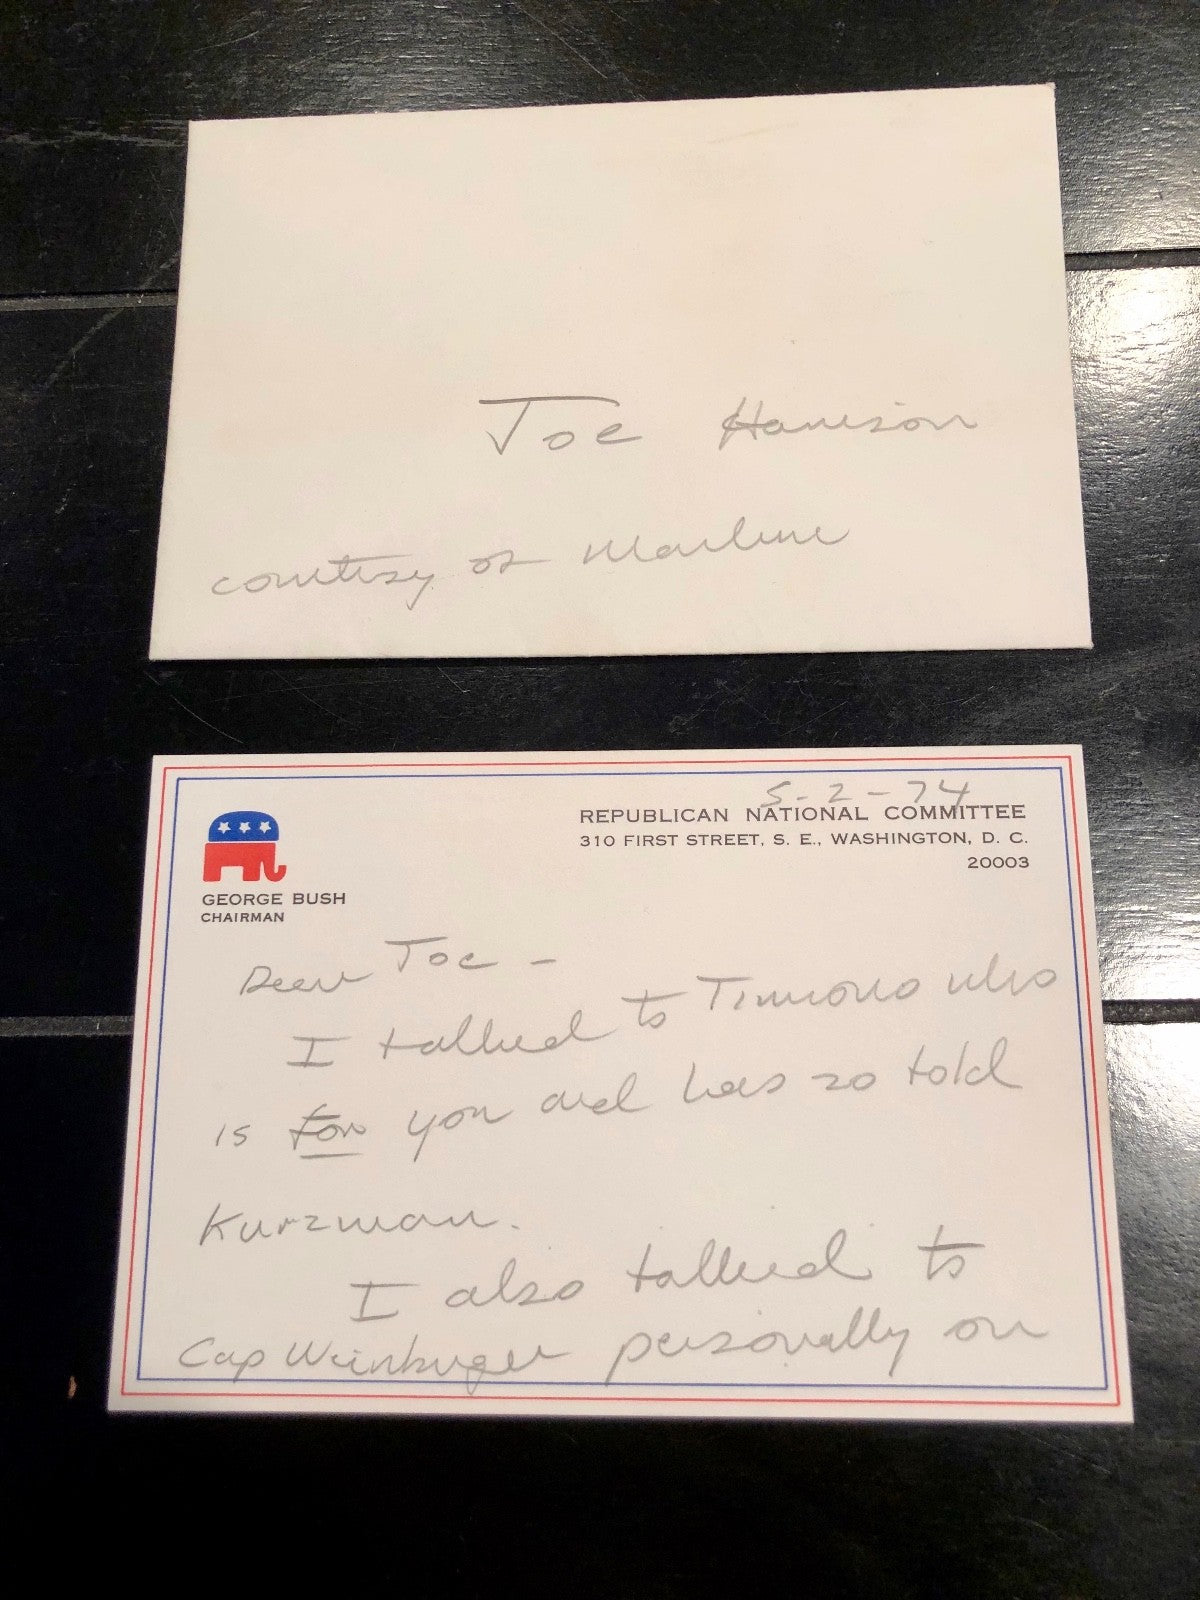 Joe Harrison
courtesy of Marlene
5-2-74
REPUBLICAN NATIONAL COMMITTEE
310 FIRST STREET, S. E., WASHINGTON, D. C.
20003
GEORGE BUSH
CHAIRMAN
Dear Joe -
I talked to Timmons who
is for you and has so told
Kurzman.
I also talked to
Cap Weinburger personally on